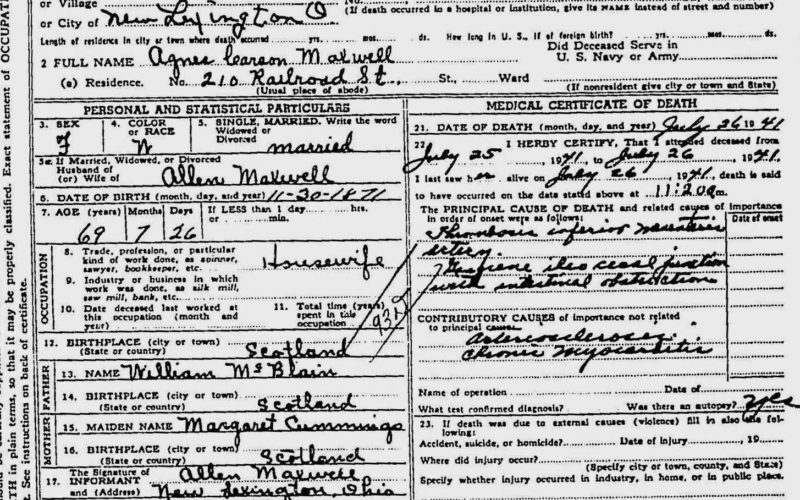 or Village
(If death occurred in a hospital or institution, give its NAME instead of street and number)
or City of New Lexington O
Length of residence in city or town where death occurred yrs. mos. ds. How long in U. S., if of foreign birth? yrs. mos. ds.
Did Deceased Serve in
U. S. Navy or Army
2 FULL NAME Agnes Carson Maxwell
(a) Residence. No. 210 Railroad St., St., Ward
(Usual place of abode) (If nonresident give city or town and State)
PERSONAL AND STATISTICAL PARTICULARS
3. SEX 4. COLOR or RACE 5. SINGLE, MARRIED. Write the word Widowed or Divorced
F W married
5a. If Married, Widowed, or Divorced
Husband of
(or) Wife of Allen Maxwell
6. DATE OF BIRTH (month, day, and year) 11-30-1871
7. AGE (years) Months Days If LESS than 1 day hrs.
or min.
69 7 26
OCCUPATION
8. Trade, profession, or particular
kind of work done, as spinner,
sawyer, bookkeeper, etc. Housewife
9. Industry or business in which
work was done, as silk mill,
saw mill, bank, etc.
10. Date deceased last worked at
this occupation (month and
year)
11. Total time (years)
spent in this
occupation
12. BIRTHPLACE (city or town)
(State or country) Scotland
FATHER
13. NAME William McBlain
14. BIRTHPLACE (city or town)
(State or country) Scotland
MOTHER
15. MAIDEN NAME Margaret Cummings
16. BIRTHPLACE (city or town)
(State or country) Scotland
17. The Signature of
INFORMANT Allen Maxwell
and (Address) New Lexington, Ohio
MEDICAL CERTIFICATE OF DEATH
21. DATE OF DEATH (month, day, and year) July 26 1941
22 I HEREBY CERTIFY, That I attended deceased from
July 25, 1941, to July 26, 1941.
I last saw her alive on July 26, 1941, death is said
to have occurred on the date stated above at 11:20 am.
The PRINCIPAL CAUSE OF DEATH and related causes of Importance
in order of onset were as follows: Date of onset
Thrombosis inferior
artery.
Gangrene ileo cecal junction
with intestinal obstruction
932
CONTRIBUTORY CAUSES of importance not related
to principal cause:
Arteriosclerosis
Chronic Myocarditis
Name of operation Date of
What test confirmed diagnosis? Was there an autopsy? yes
23. If death was due to external causes (violence) fill in also the fol-
lowing:
Accident, suicide, or homicide? Date of injury, 19
Where did injury occur?
(Specify city or town, county, and State)
Specify whether injury occurred in industry, in home, or in public place.
TH in plain terms, so that it may be properly classified. Exact statement of OCCUPATI
See instructions on back of certificate.